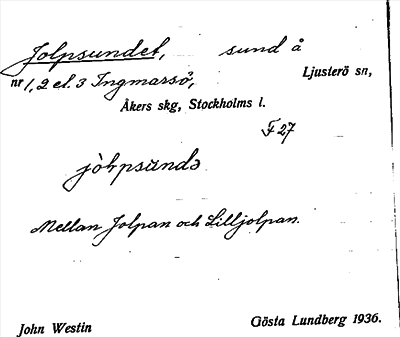 Jolpsundet, sund å
nr 1, 2 el. 3 Ingmarsö, Ljusterö sn,
Åkers skg, Stockholms l.
F 27
jòḷpsundə
Mellan Jolpan och Lilljolpan.
John Westin Gösta Lundberg 1936.